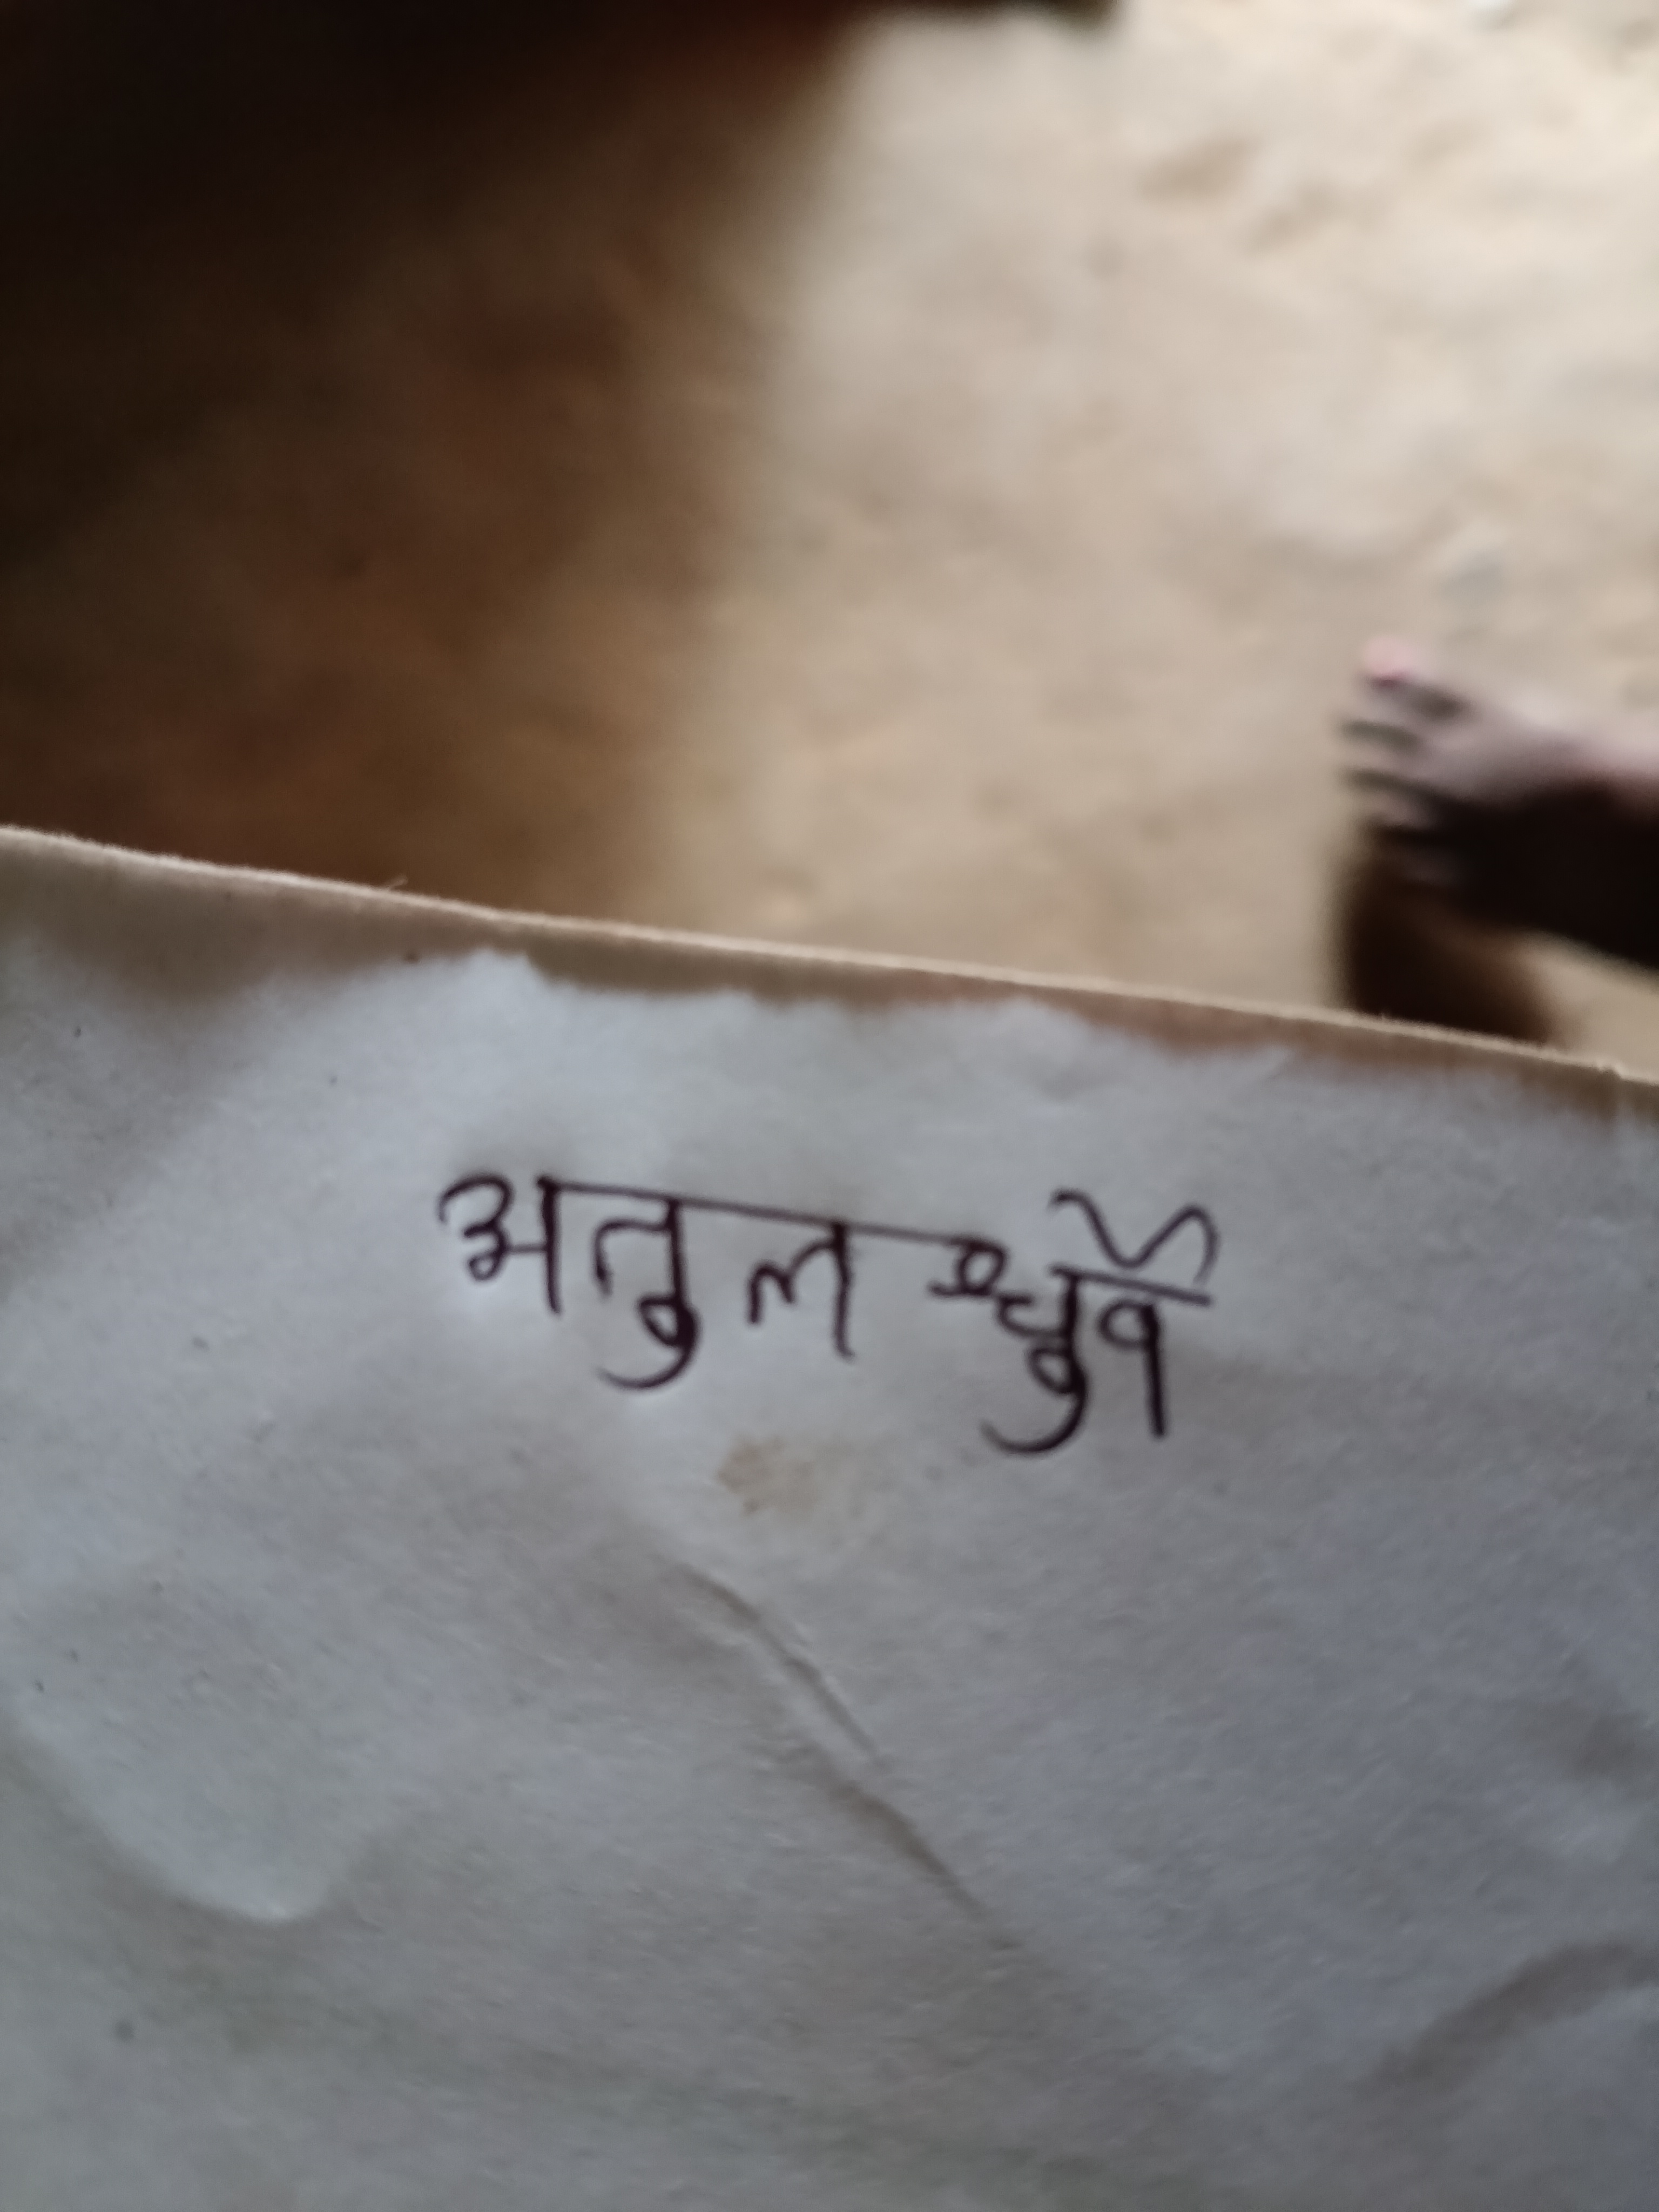 अतुल ध्रुर्वे